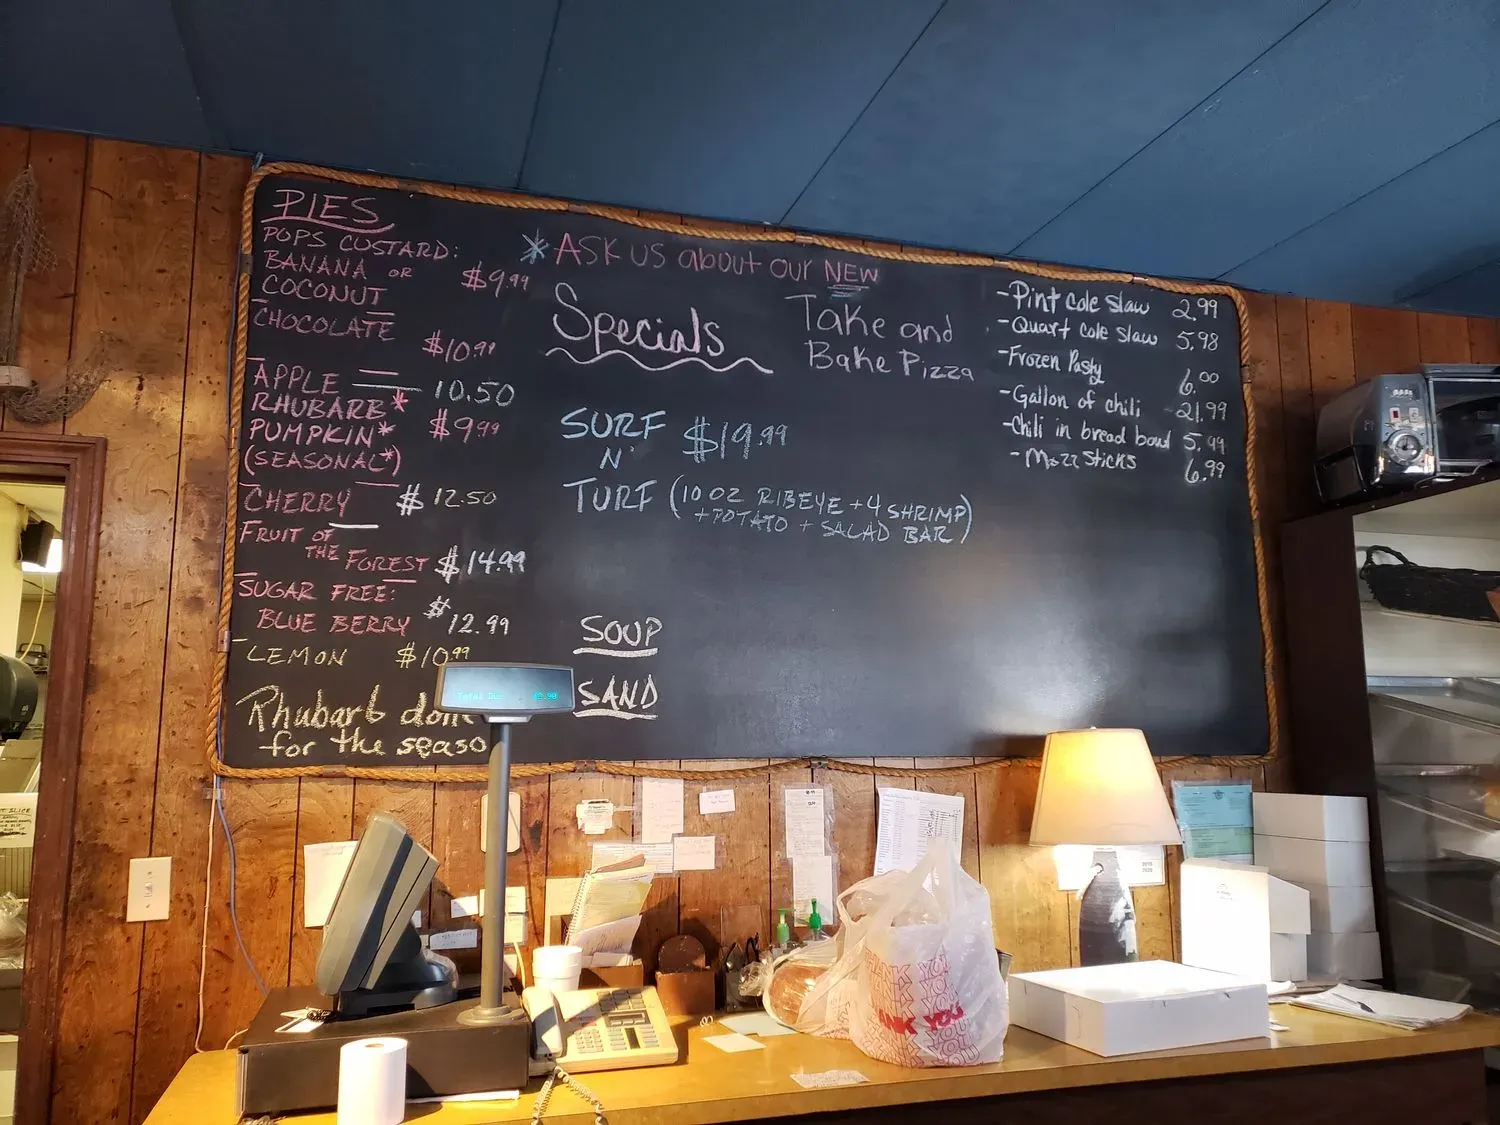 PIES
POPS CUSTARD:
BANANA OR
COCONUT
$9.99
CHOCOLATE
$10.99
APPLE 10.50
RHUBARB*
PUMPKIN* $9.99
(SEASONAL*)
CHERRY $12.50
FRUIT OF
THE FOREST $14.99
SUGAR FREE:
BLUE BERRY $12.99
LEMON $10.99
Rhubarb
for the seaso
*ASK US about our NEW
Take and
Bake Pizza
Specials
SURF
N'
TURF
$19.99
(10 OZ RIBEYE + 4 SHRIMP
+ POTATO + SALAD BAR)
SOUP
SAND
-Pint cole slaw 2.99
-Quart cole slaw 5.98
-Frozen Pasty 6.00
-Gallon of chili 21.99
-Chili in bread bowl 5.99
-Mozz Sticks 6.99
THANK YOU